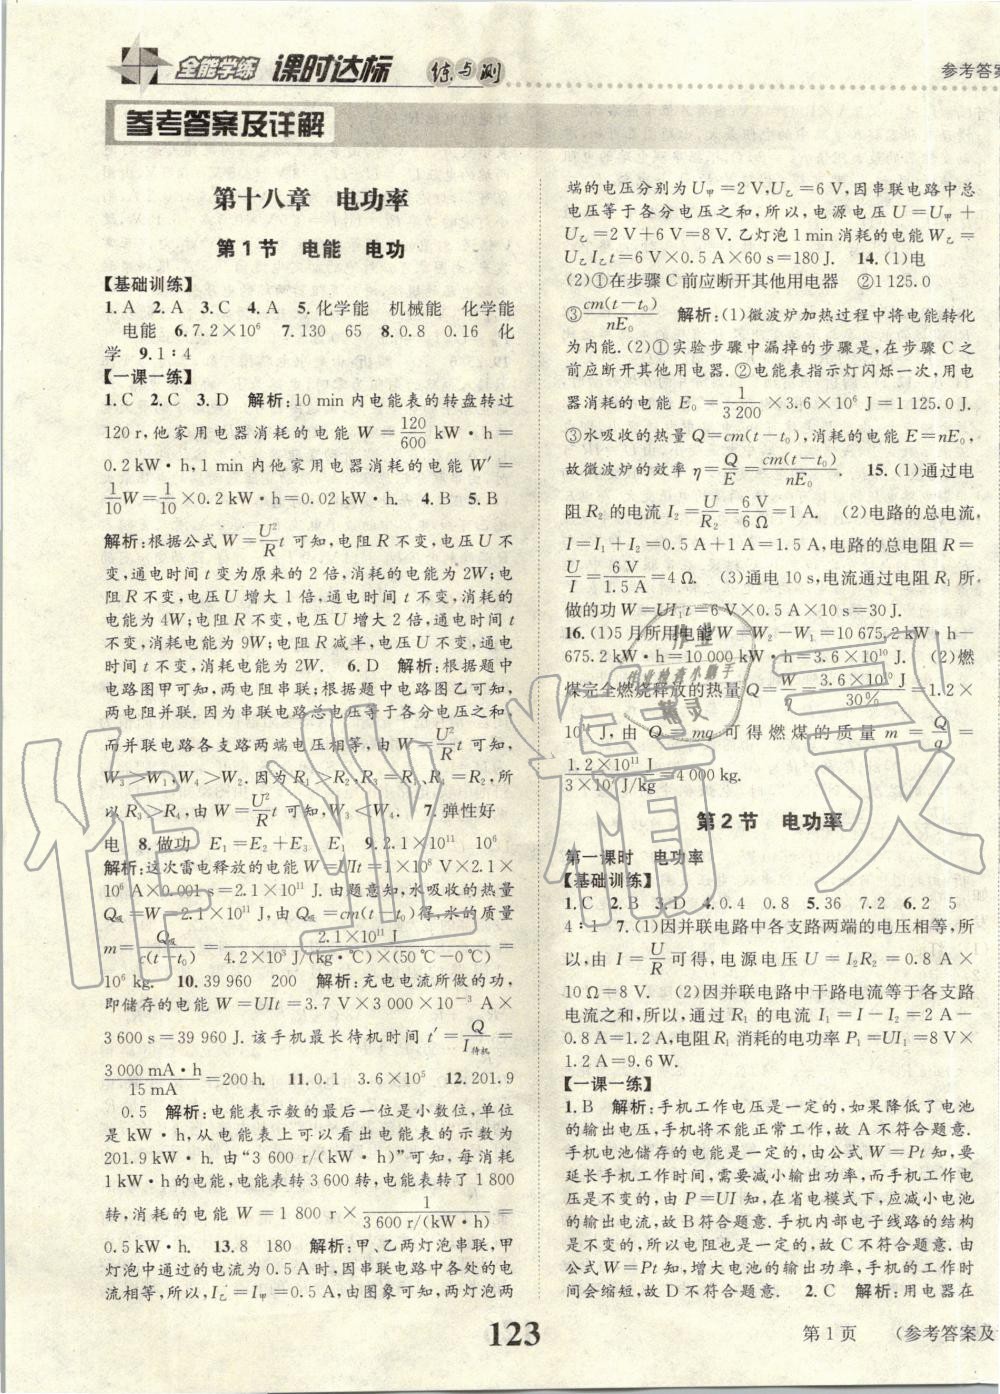 全能学练 课时达标 练与测
参考答案
参考答案及详解
第十八章 电功率
第1节 电能 电功
【基础训练】
1.A 2.A 3.C 4.A 5.化学能 机械能 化学能
电能 6.7.2×10⁶ 7.130 65 8.0.8 0.16 化
学 9.1∶4
【一课一练】
1.C 2.C 3.D 解析:10 min内电能表的转盘转过
120 r,他家用电器消耗的电能 W=120/600 kW·h=
0.2 kW·h,1 min内他家用电器消耗的电能 W′=
1/10W=1/10×0.2 kW·h=0.02 kW·h. 4.B 5.B
解析:根据公式 W=U²/R t 可知,电阻R不变,电压U不
变,通电时间 t 变为原来的2倍,消耗的电能为2W;电
阻R不变,电压U增大1倍,通电时间 t 不变,消耗的
电能为4W;电阻R不变,电压U增大2倍,通电时间 t
不变,消耗的电能为9W;电阻R减半,电压U不变,通电
时间 t 不变,消耗的电能为2W. 6.D 解析:根据题中
电路图甲可知,两电阻串联;根据题中电路图乙可知,
两电阻并联.因为串联电路总电压等于各分电压之和,
而并联电路各支路两端电压相等,根据 W=U²/R t 可知,
W₃>W₁,W₄>W₂.因为R₁>R₂,R₃=R₁,R₄=R₂,所
以R₃>R₄,由 W=U²/R t 可知,W₃<W₄. 7.弹性好
电 8.做功 E₁=E₂+E₃ E₁ 9.2.1×10¹¹ 10⁶
解析:这次雷电释放的电能 W=UIt=1×10⁸ V×2.1×
10⁶ A×0.001 s=2.1×10¹¹ J.由题意知,水吸收的热量
Q吸=W=2.1×10¹¹ J,由 Q吸=cm(t-t₀)得,水的质量
m=Q吸/c(t-t₀)=2.1×10¹¹ J/4.2×10³ J/(kg·℃)×(50 ℃-0 ℃)=
10⁶ kg. 10.39 960 200 解析:充电电流所做的功,
即储存的电能 W=UIt=3.7 V×3 000×10⁻³ A×
3 600 s=39 960 J.该手机最长待机时间 t′=Q/I待机=
3 000 mA·h/15 mA=200 h. 11.0.1 3.6×10⁵ 12.201.9
0.5 解析:电能表示数的最后一位是小数位,单位
是 kW·h,从电能表上可以看出电能表的示数为
201.9 kW·h.由“3 600 r/(kW·h)”可知,每消耗
1 kW·h的电能,电能表转3 600转,电能表转了1 800
转,消耗的电能 W=1 800 r×1/3 600 r/(kW·h)=
0.5 kW·h. 13.8 180 解析:甲、乙两灯泡串联,甲
灯泡中通过的电流为0.5 A时,串联电路中各处的电
流相等,所以,I乙=I甲=0.5 A,由图象可知,两灯泡两
端的电压分别为U甲=2 V,U乙=6 V,因串联电路中总
电压等于各分电压之和,所以,电源电压U=U甲+
U乙=2 V+6 V=8 V.乙灯泡1 min消耗的电能W乙=
U乙I乙t=6 V×0.5 A×60 s=180 J. 14.(1)电
(2)①在步骤C前应断开其他用电器 ②1 125.0
③cm(t-t₀)/nE₀ 解析:(1)微波炉加热过程中将电能转化
为内能.(2)①实验步骤中漏掉的步骤是,在步骤C之
前应断开其他用电器.②电能表指示灯闪烁一次,用电
器消耗的电能 E₀=1/3 200×3.6×10⁶ J=1 125.0 J.
③水吸收的热量Q=cm(t-t₀),消耗的电能E=nE₀,
故微波炉的效率 η=Q/E=cm(t-t₀)/nE₀. 15.(1)通过电
阻R₂的电流 I₂=U/R₂=6 V/6 Ω=1 A. (2)电路的总电流,
I=I₁+I₂=0.5 A+1 A=1.5 A,电路的总电阻R=
U/I=6 V/1.5 A=4 Ω. (3)通电10 s,电流通过电阻R₁所
做的功W=UI₁t=6 V×0.5 A×10 s=30 J.
16.(1)5月所用电能W=W₂-W₁=10 675.2 kW·h-
675.2 kW·h=10 000 kW·h=3.6×10¹⁰ J. (2)燃
煤完全燃烧释放的热量Q=W/η=3.6×10¹⁰ J/30%=1.2×
10¹¹ J,由Q=mq可得燃煤的质量m=Q/q=
1.2×10¹¹ J/3×10⁷ J/kg=4 000 kg.
第2节 电功率
第一课时 电功率
【基础训练】
1.C 2.B 3.D 4.0.4 0.8 5.36 7.2 6.2 5
4∶1 7.(1)因并联电路中各支路两端的电压相等,所
以,由 I=U/R 可得,电源电压 U=I₂R₂=0.8 A×
10 Ω=8 V. (2)因并联电路中干路电流等于各支路
电流之和,所以,通过R₁的电流I₁=I-I₂=2 A-
0.8 A=1.2 A,电阻R₁消耗的电功率P₁=UI₁=8 V×
1.2 A=9.6 W.
【一课一练】
1.B 解析:手机工作电压是一定的,如果降低了电池
的输出电压,手机将不能正常工作,故A不符合题意.
手机电池储存的电能是一定的,由公式W=Pt知,要
延长手机工作时间,需要减小输出功率,而手机工作电
压是不变的,由P=UI知,在省电模式下,应减小电池
的输出电流,故B符合题意.手机内部电子线路的结构
是不变的,所以电阻也是一定的,故C不符合题意.由
公式W=Pt知,增大电池的输出功率,手机的工作时间
会缩短,故D不符合题意. 2.C 解析:用电器在
123
第1页 (参考答案及
作业精灵
作业检查小帮手
精灵